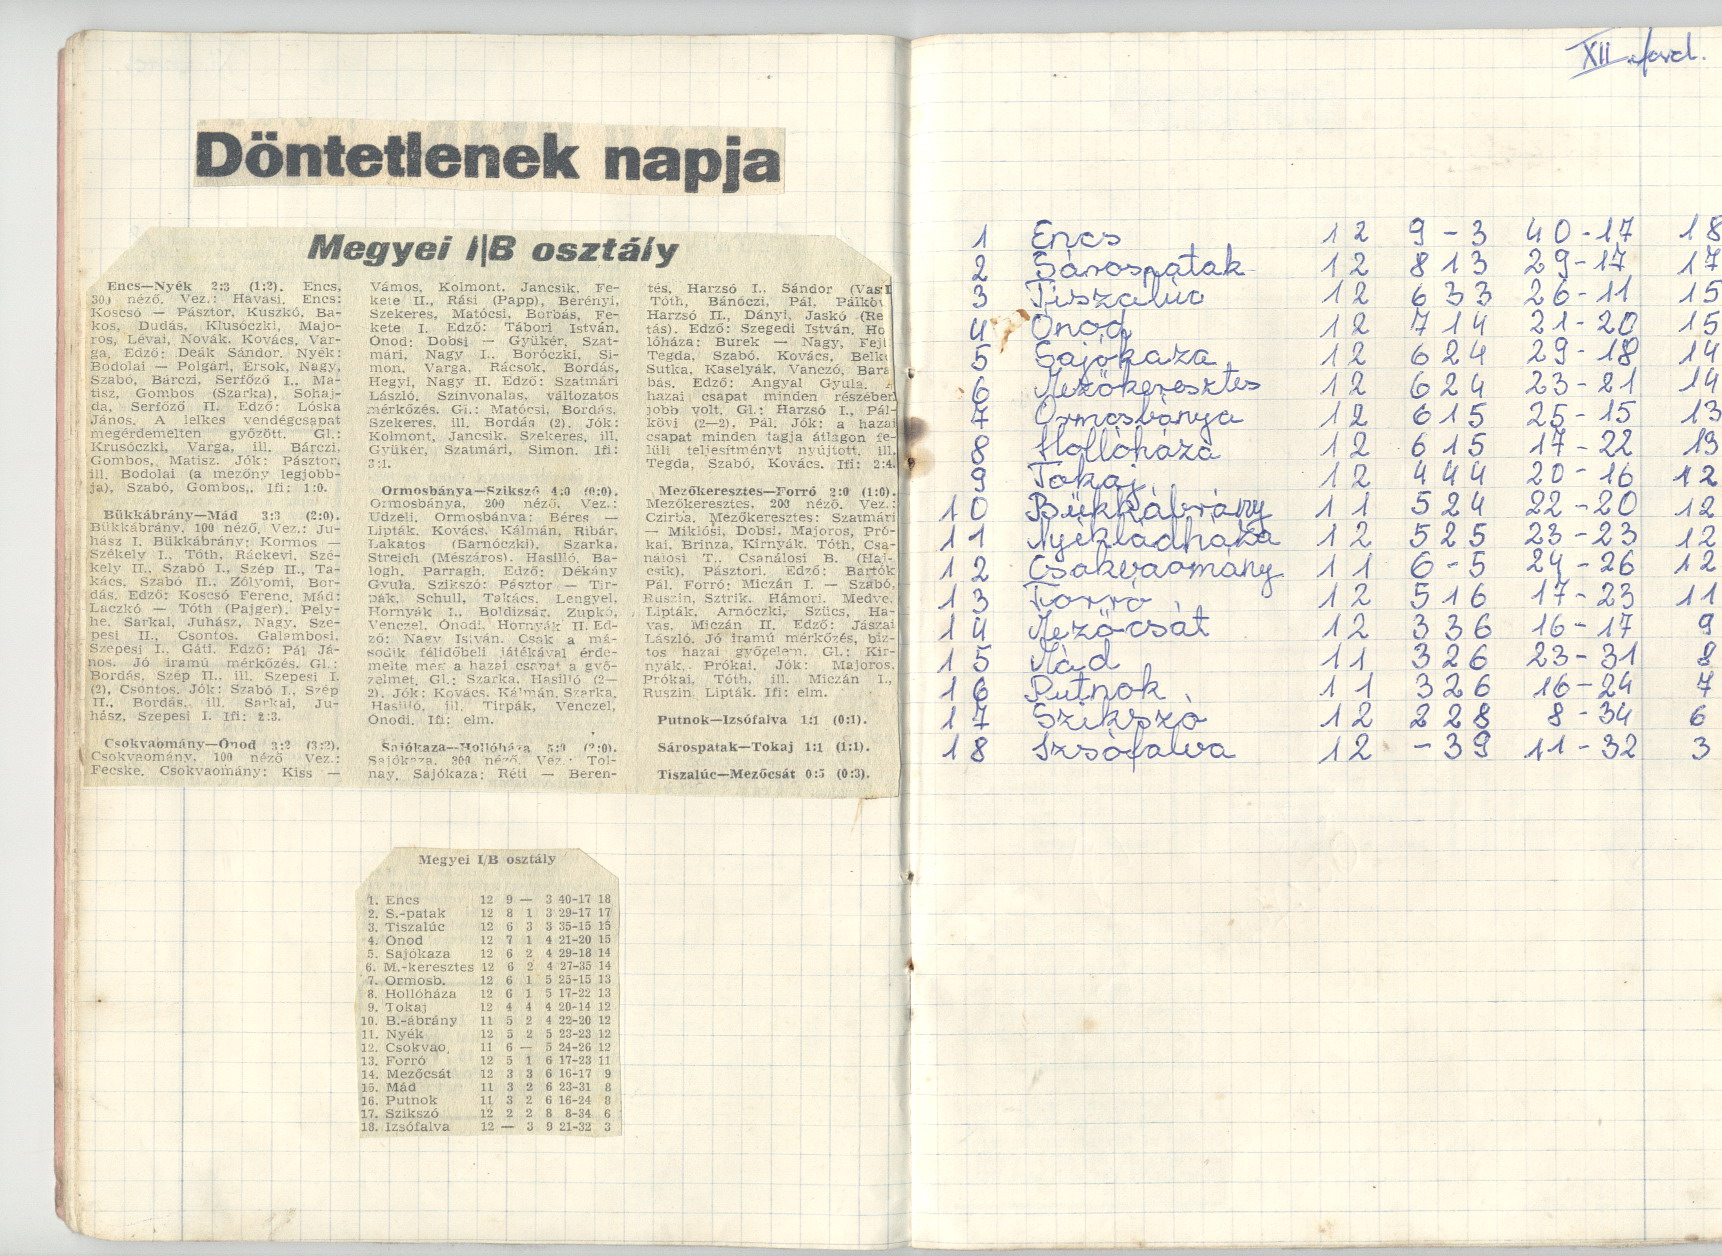 Döntetlenek napja
Megyei I/B osztály
Encs—Nyék 2:3 (1:2). Encs,
300 néző. Vez.: Havasi. Encs:
Koscsó — Pásztor, Kuszkó, Ba-
kos, Dudás, Klusóczki, Majo-
ros, Lévai, Novák, Kovács, Var-
ga, Edző: Deák Sándor. Nyék:
Bodolai — Polgári, Ersok, Nagy,
Szabó, Bárczi, Serfőző I., Ma-
tisz, Gombos (Szarka), Sohaj-
da, Serfőző II. Edző: Lóska
János. A lelkes vendégcsapat
megérdemelten győzött. Gl.:
Krusóczki, Varga, ill. Bárczi,
Gombos, Matisz. Jók: Pásztor,
ill. Bodolai (a mezőny legjobb-
ja), Szabó, Gombos,. Ifi: 1:0.
Bükkábrány—Mád 3:3 (2:0).
Bükkábrány, 100 néző, Vez.: Ju-
hász I. Bükkábrány: Kormos —
Székely I., Tóth, Ráckevi, Szé-
kely II., Szabó I., Szép II., Ta-
kács, Szabó II., Zólyomi, Bor-
dás, Edző: Koscsó Ferenc. Mád:
Laczkó — Tóth (Pajger), Pely-
he, Sarkai, Juhász, Nagy, Sze-
pesi II., Csontos, Galambosi,
Szepesi I., Gáti. Edző: Pál Já-
nos. Jó iramú mérkőzés. Gl.:
Bordás, Szép II., ill. Szepesi I.
(2), Csontos. Jók: Szabó I., Szép
II., Bordás, ill. Sarkai, Ju-
hász, Szepesi I. Ifi: 2:3.
Csokvaomány—Ónod 3:2 (3:2).
Csokvaomány, 100 néző Vez.:
Fecske. Csokvaomány: Kiss —
Vámos, Kolmont, Jancsik, Fe-
kete II., Rási (Papp), Berényi,
Szekeres, Matócsi, Borbás, Fe-
kete I. Edző: Tábori István.
Ónod: Dobsi — Gyükér, Szat-
mári, Nagy I., Boróczki, Si-
mon, Varga, Rácsok, Bordás,
Hegyi, Nagy II. Edző: Szatmári
László. Színvonalas, változatos
mérkőzés. Gl.: Matócsi, Bordás,
Szekeres, ill. Bordás (2). Jók:
Kolmont, Jancsik, Szekeres, ill.
Gyükér, Szatmári, Simon. Ifi:
3:1.
Ormosbánya—Szikszó 4:0 (0:0).
Ormosbánya, 200 néző, Vez.:
Udzeli, Ormosbánya: Béres —
Lipták, Kovács, Kálmán, Ribár,
Lakatos (Barnóczki), Szarka,
Streich (Mészáros), Hasilló, Ba-
logh, Parragh, Edző: Dékány
Gyula, Szikszó: Pásztor — Tir-
pák, Schull, Takács, Lengyel,
Hornyák I., Boldizsár, Zupkó,
Venczel, Ónodi, Hornyák II. Ed-
ző: Nagy István. Csak a má-
sodik félidőbeli játékával érde-
melte meg a hazai csapat a győ-
zelmet. Gl.: Szarka, Hasilló (2—
2). Jók: Kovács, Kálmán, Szarka,
Hasilló, ill. Tirpák, Venczel,
Ónodi. Ifi: elm.
Sajókaza—Hollóháza 5:0 (2:0).
Sajókaza, 300 néző. Vez.: Tol-
nay, Sajókaza: Réti — Beren-
tés, Harzsó I., Sándor (Vas I
Tóth, Bánóczi, Pál, Pálköv
Harzsó II., Dányi, Jaskó (Re
tás). Edző: Szegedi István. Ho
lóháza: Burek — Nagy, Fejt
Tegda, Szabó, Kovács, Belk
Sutka, Kaselyák, Vanczó, Bara
bás. Edző: Angyal Gyula. A
hazai csapat minden részében
jobb volt, Gl.: Harzsó I., Pál-
kövi (2—2), Pál. Jók: a hazai
csapat minden tagja átlagon fe-
lüli teljesítményt nyújtott, ill.
Tegda, Szabó, Kovács. Ifi: 2:4.
Mezőkeresztes—Forró 2:0 (1:0).
Mezőkeresztes, 200 néző. Vez.:
Czirba, Mezőkeresztes: Szatmári
— Miklósi, Dobsi, Majoros, Pró-
kai, Brinza, Kirnyák, Tóth, Csa-
nálosi T., Csanálosi B. (Haj-
csik), Pásztori, Edző: Bartók
Pál, Forró: Miczán I. — Szabó,
Ruszin, Sztrik, Hámori, Medve,
Lipták, Arnóczki, Szűcs, Ha-
vas, Miczán II. Edző: Jászai
László. Jó iramú mérkőzés, biz-
tos hazai győzelem. Gl.: Kir-
nyák, Prókai, Jók: Majoros,
Prókai, Tóth, ill. Miczán I.,
Ruszin, Lipták. Ifi: elm.
Putnok—Izsófalva 1:1 (0:1).
Sárospatak—Tokaj 1:1 (1:1).
Tiszalúc—Mezőcsát 0:5 (0:3).
Megyei I/B osztály
1. Encs 12 9 — 3 40-17 18
2. S.-patak 12 8 1 3 29-17 17
3. Tiszalúc 12 6 3 3 35-15 15
4. Ónod 12 7 1 4 21-20 15
5. Sajókaza 12 6 2 4 29-18 14
6. M.-keresztes 12 6 2 4 27-35 14
7. Ormosb. 12 6 1 5 25-15 13
8. Hollóháza 12 6 1 5 17-22 13
9. Tokaj 12 4 4 4 20-14 12
10. B.-ábrány 11 5 2 4 22-20 12
11. Nyék 12 5 2 5 23-23 12
12. Csokvao. 11 6 — 5 24-26 12
13. Forró 12 5 1 6 17-23 11
14. Mezőcsát 12 3 3 6 16-17 9
15. Mád 11 3 2 6 23-31 8
16. Putnok 11 3 2 6 16-24 8
17. Szikszó 12 2 2 8 8-34 6
18. Izsófalva 12 — 3 9 21-32 3
XII. ford.
1 Encs 12 9 - 3 40-17 18
2 Sárospatak 12 8 1 3 29-17 17
3 Tiszalúc 12 6 3 3 26-11 15
4 Ónod 12 7 1 4 21-20 15
5 Sajókaza 12 6 2 4 29-18 14
6 Mezőkeresztes 12 6 2 4 23-21 14
7 Ormosbánya 12 6 1 5 25-15 13
8 Hollóháza 12 6 1 5 17-22 13
9 Tokaj 12 4 4 4 20-16 12
10 Bükkábrány 11 5 2 4 22-20 12
11 Nyékládháza 12 5 2 5 23-23 12
12 Csokvaomány 11 6 - 5 24-26 12
13 Forró 12 5 1 6 17-23 11
14 Mezőcsát 12 3 3 6 16-17 9
15 Mád 11 3 2 6 23-31 8
16 Putnok 11 3 2 6 16-24 7
17 Szikszó 12 2 2 8 8-34 6
18 Izsófalva 12 - 3 9 11-32 3